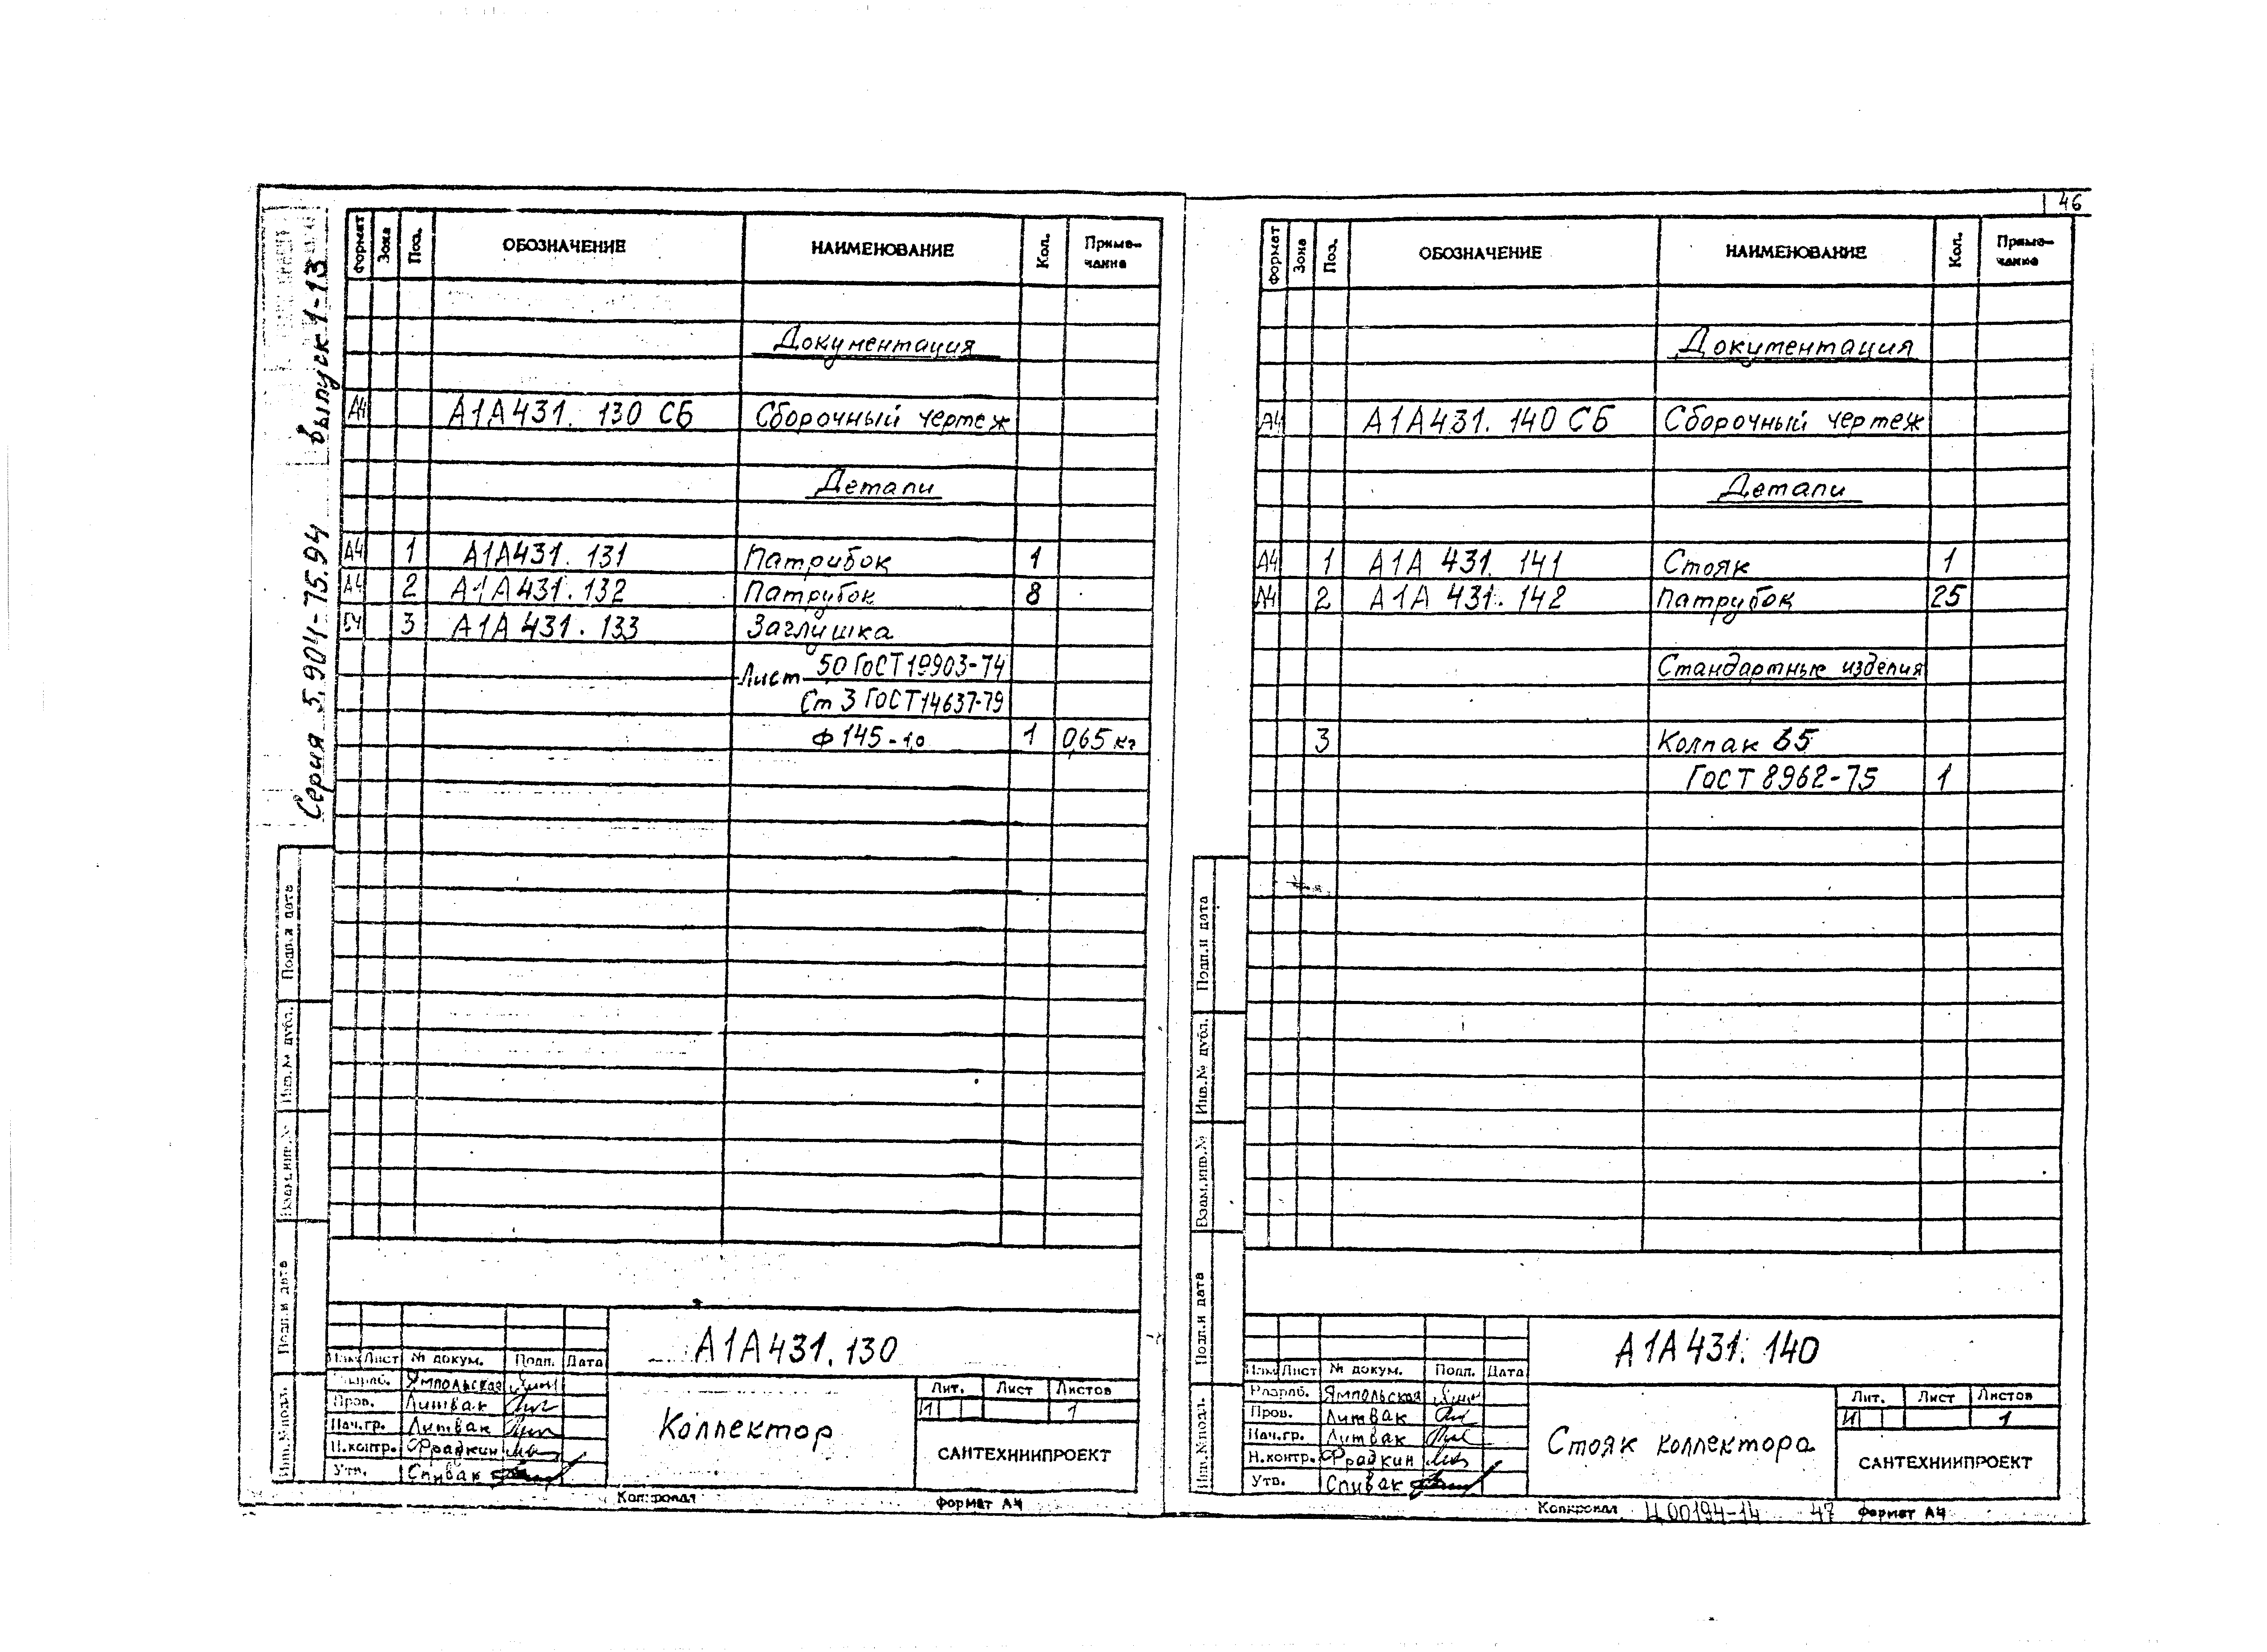 46
Серия 5.904-75.94 Выпуск 1-13
Формат Зона Поз. ОБОЗНАЧЕНИЕ НАИМЕНОВАНИЕ Кол. Приме-
чание
Документация
А4 А1А431. 130 СБ Сборочный чертеж
Детали
А4 1 А1А431. 131 Патрубок 1
А4 2 А1А431. 132 Патрубок 8
БЧ 3 А1А 431. 133 Заглушка
Лист 5,0 ГОСТ 19903-74
Ст 3 ГОСТ 14637-79
Ф 145-1,0 1 0,65 кг
Подп.и дата
Инв.№ дубл.
Взам.инв.№
Подп.и дата
Инв.№подл.
А1А431.130
Изм Лист № докум. Подп. Дата
Разраб. Ямпольская
Пров. Литвак
Нач.гр. Литвак
Н.контр. Фрадкин
Утв. Спивак
Коллектор
Лит. Лист Листов
И 1
САНТЕХНИИПРОЕКТ
Копировал Формат А4
Формат Зона Поз. ОБОЗНАЧЕНИЕ НАИМЕНОВАНИЕ Кол. Приме-
чание
Документация
А4 А1А431. 140 СБ Сборочный чертеж
Детали
А4 1 А1А 431. 141 Стояк 1
А4 2 А1А 431. 142 Патрубок 25
Стандартные изделия
3 Колпак 65
ГОСТ 8962-75 1
Подп.и дата
Инв.№ дубл.
Взам.инв.№
Подп.и дата
Инв.№подл.
А1А431. 140
Изм Лист № докум. Подп. Дата
Разраб. Ямпольская
Пров. Литвак
Нач.гр. Литвак
Н.контр. Фрадкин
Утв. Спивак
Стояк коллектора
Лит. Лист Листов
И 1
САНТЕХНИИПРОЕКТ
Копировал Ц00194-14 47 Формат А4